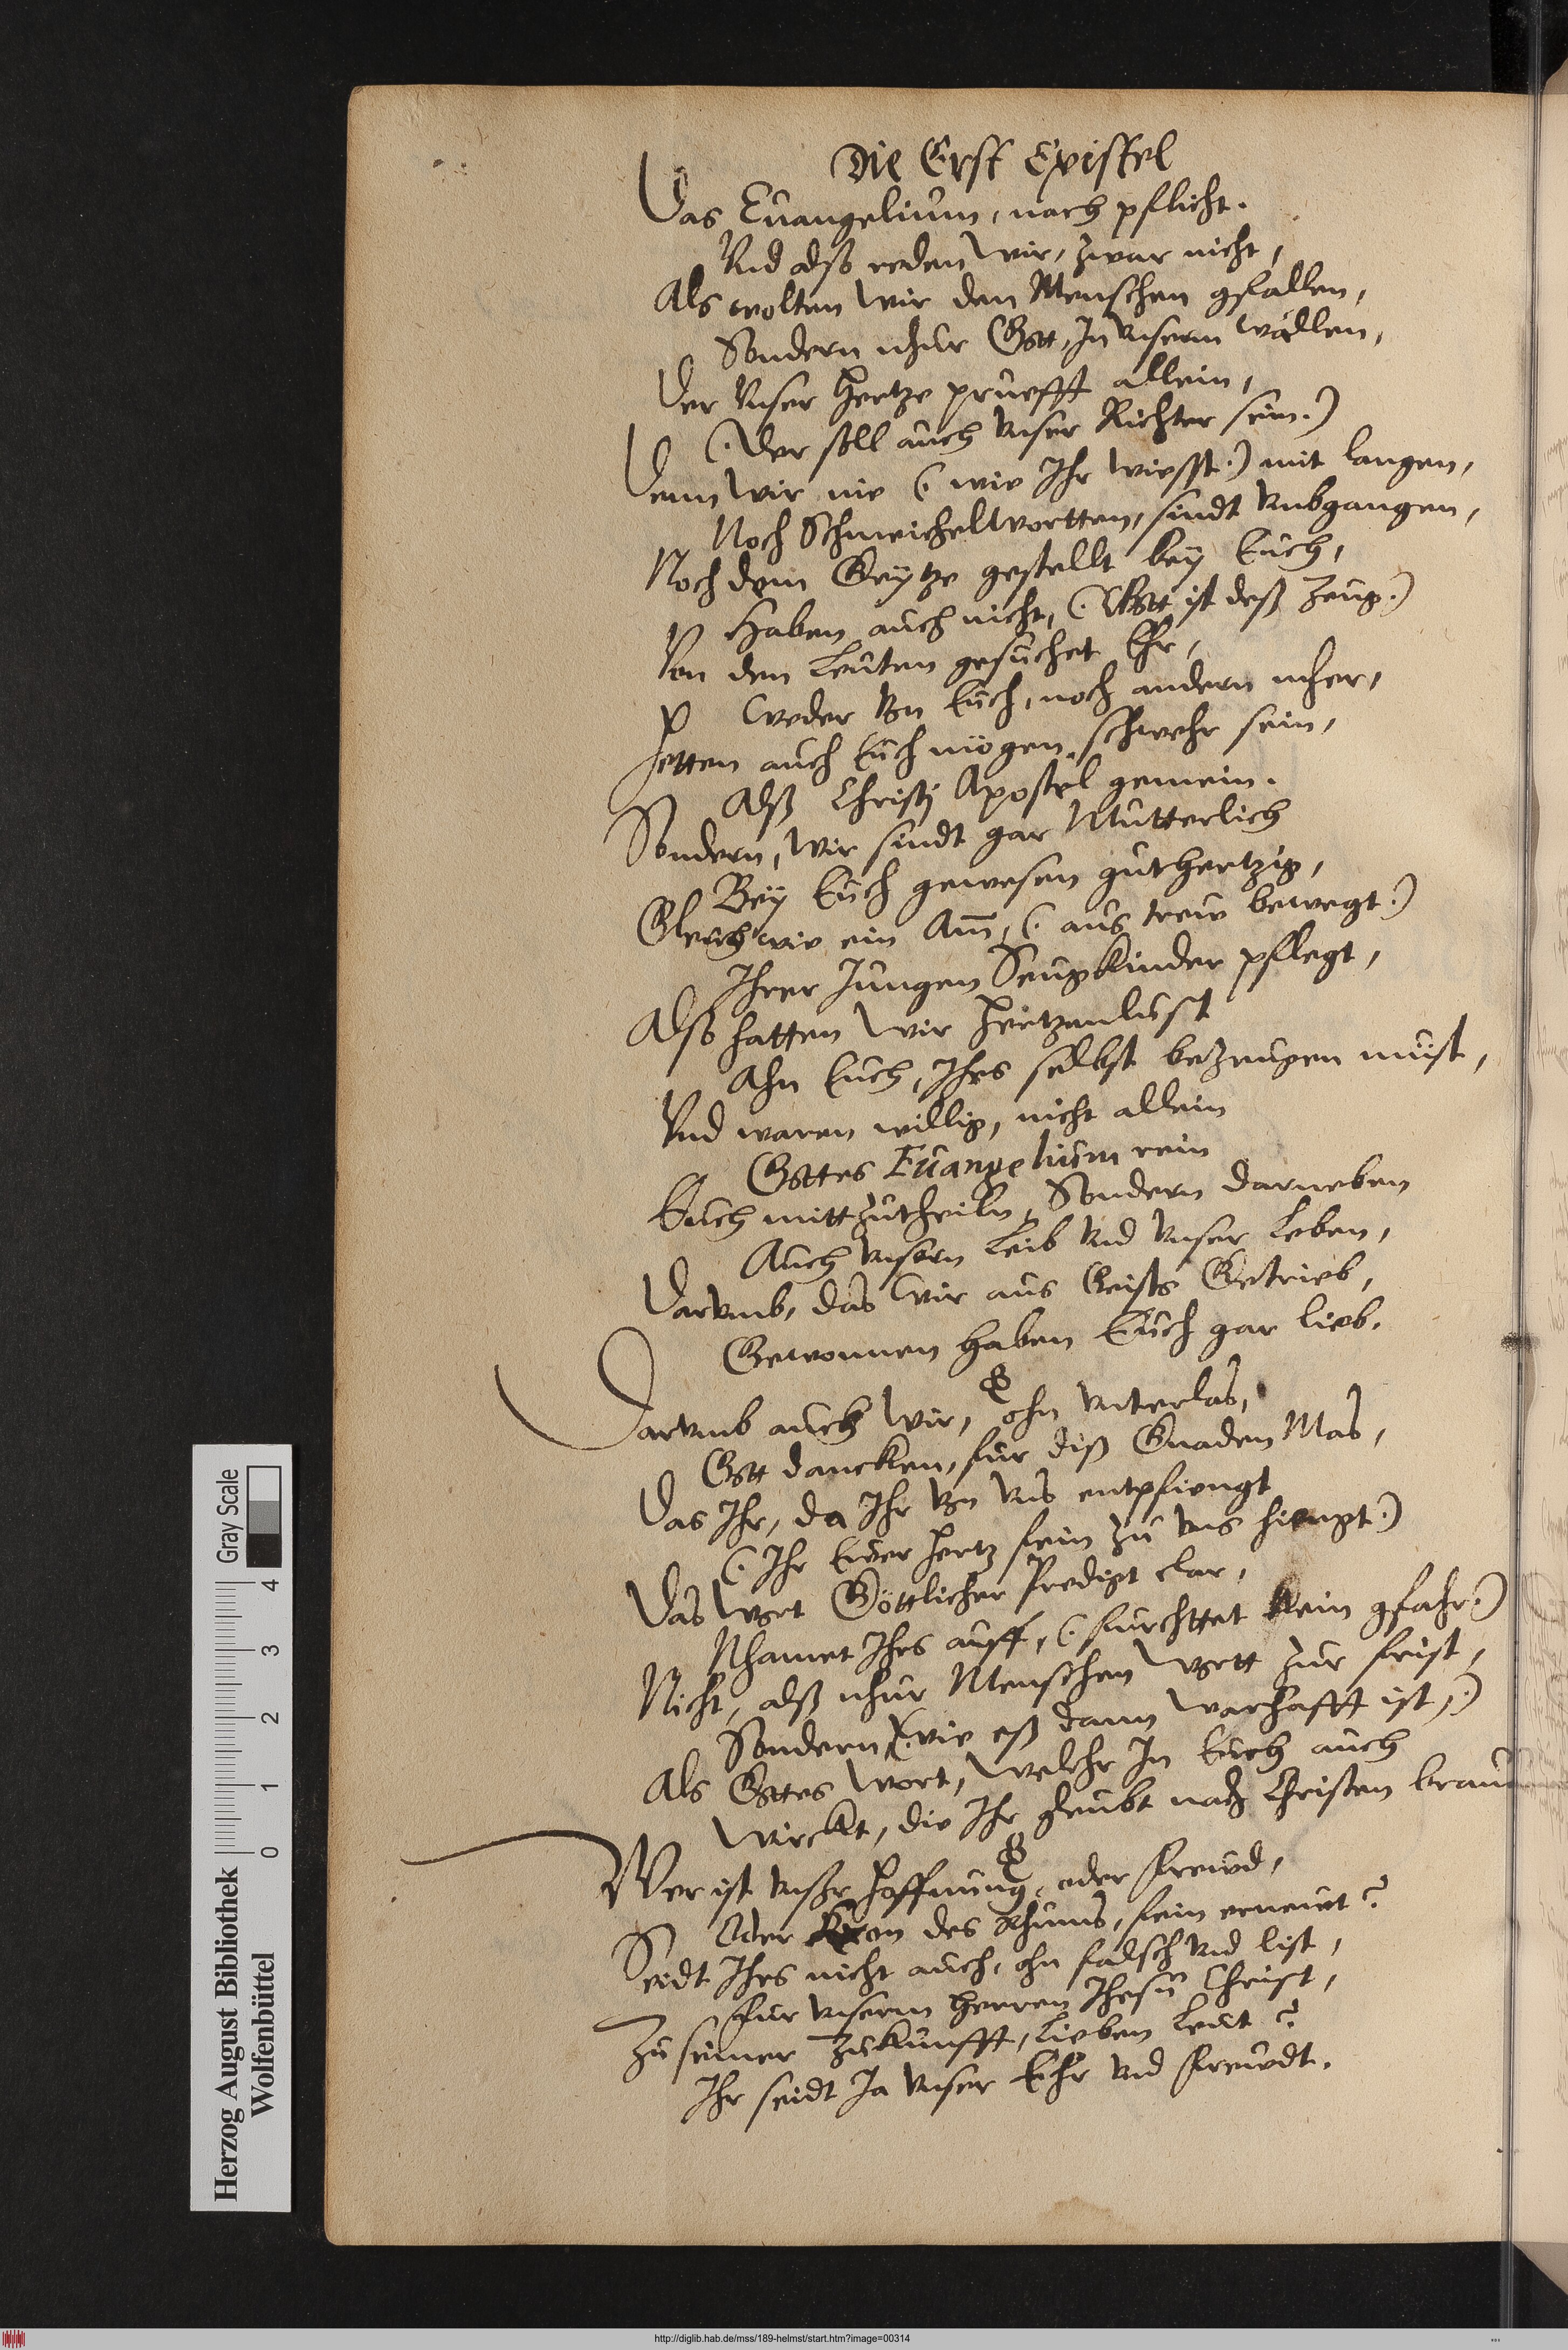 Die Erst Epistel
Das Euangelium, nach pflicht.
Vnd also reden wir, zwar nicht,
Als wolten wir den Menschen gfallen,
Sondern nhur Gott, In vnserm wallen,
Der Vnser Hertze pruefft allein,
(. Der soll auch vnser Richter sein.)
Denn wir nie (. wie Ihr wiesst.) mit langen,
Noch Schmeichellwortten, sindt vmbgangen,
Noch dem Geytze gestellt bey Euch,
Haben auch nicht, (. Gott ist deß Zeug.)
Von den Leuten gesuchet Ehr,
Weder von Euch, noch andern mher,
Hetten auch Euch mögen schwehr sein,
Alß Christi Apostel gemein.
Sondern, wir sindt gar Mutterlich
Bey Euch gewesen guthertzig,
Gleich wie ein Am̄, (. aus trew bewegt.)
Ihrer Jungen Seugkinder pflegt,
Also hatten wir Hertzenlust
Ahn Euch, Ihrs selbst bezeugen must,
Vnd waren willig, nicht allein
Gottes Euangelium rein
Euch mittzutheiln, Sondern darneben
Auch vnsern Leib vnd vnser Leben,
Darumb, das wir aus Geists Getrieb,
Gewonnen haben Euch gar lieb.
Darumb auch wir, ohn vnterlas,
Gott dancken, fur diß Gnaden Mas,
Das Ihr, da Ihr von vns entpfiengt
(. Ihr Ewer Hertz fein zu vns hiengt.)
Das wort Göttlicher Predigt clar,
Nhamet Ihrs auff, (. furchttet kein gfahr.)
Nicht, alß nhur Menschen wortt zur frist,
Sondern, (. wie eß dann warhafft ist,.)
Als Gottes wort, welchs In Euch auch
Wirckt, die Ihr gleubt nach Christen brau
Wer ist vnsr Hoffnung, oder Frewd,
Oder Kron des Rhums, fein ernewt?
Seidt Ihrs nicht auch, ohn falsch vnd list,
Fur vnserm Herren Ihesu Christ,
Zu seiner Zukunfft, lieben Leut?
Ihr seidt Ja vnser Ehr vnd Frewdt.
Herzog August Bibliothek
Wolfenbüttel
0 1 2 3 4
Gray Scale
http://diglib.hab.de/mss/189-helmst/start.htm?image=00314